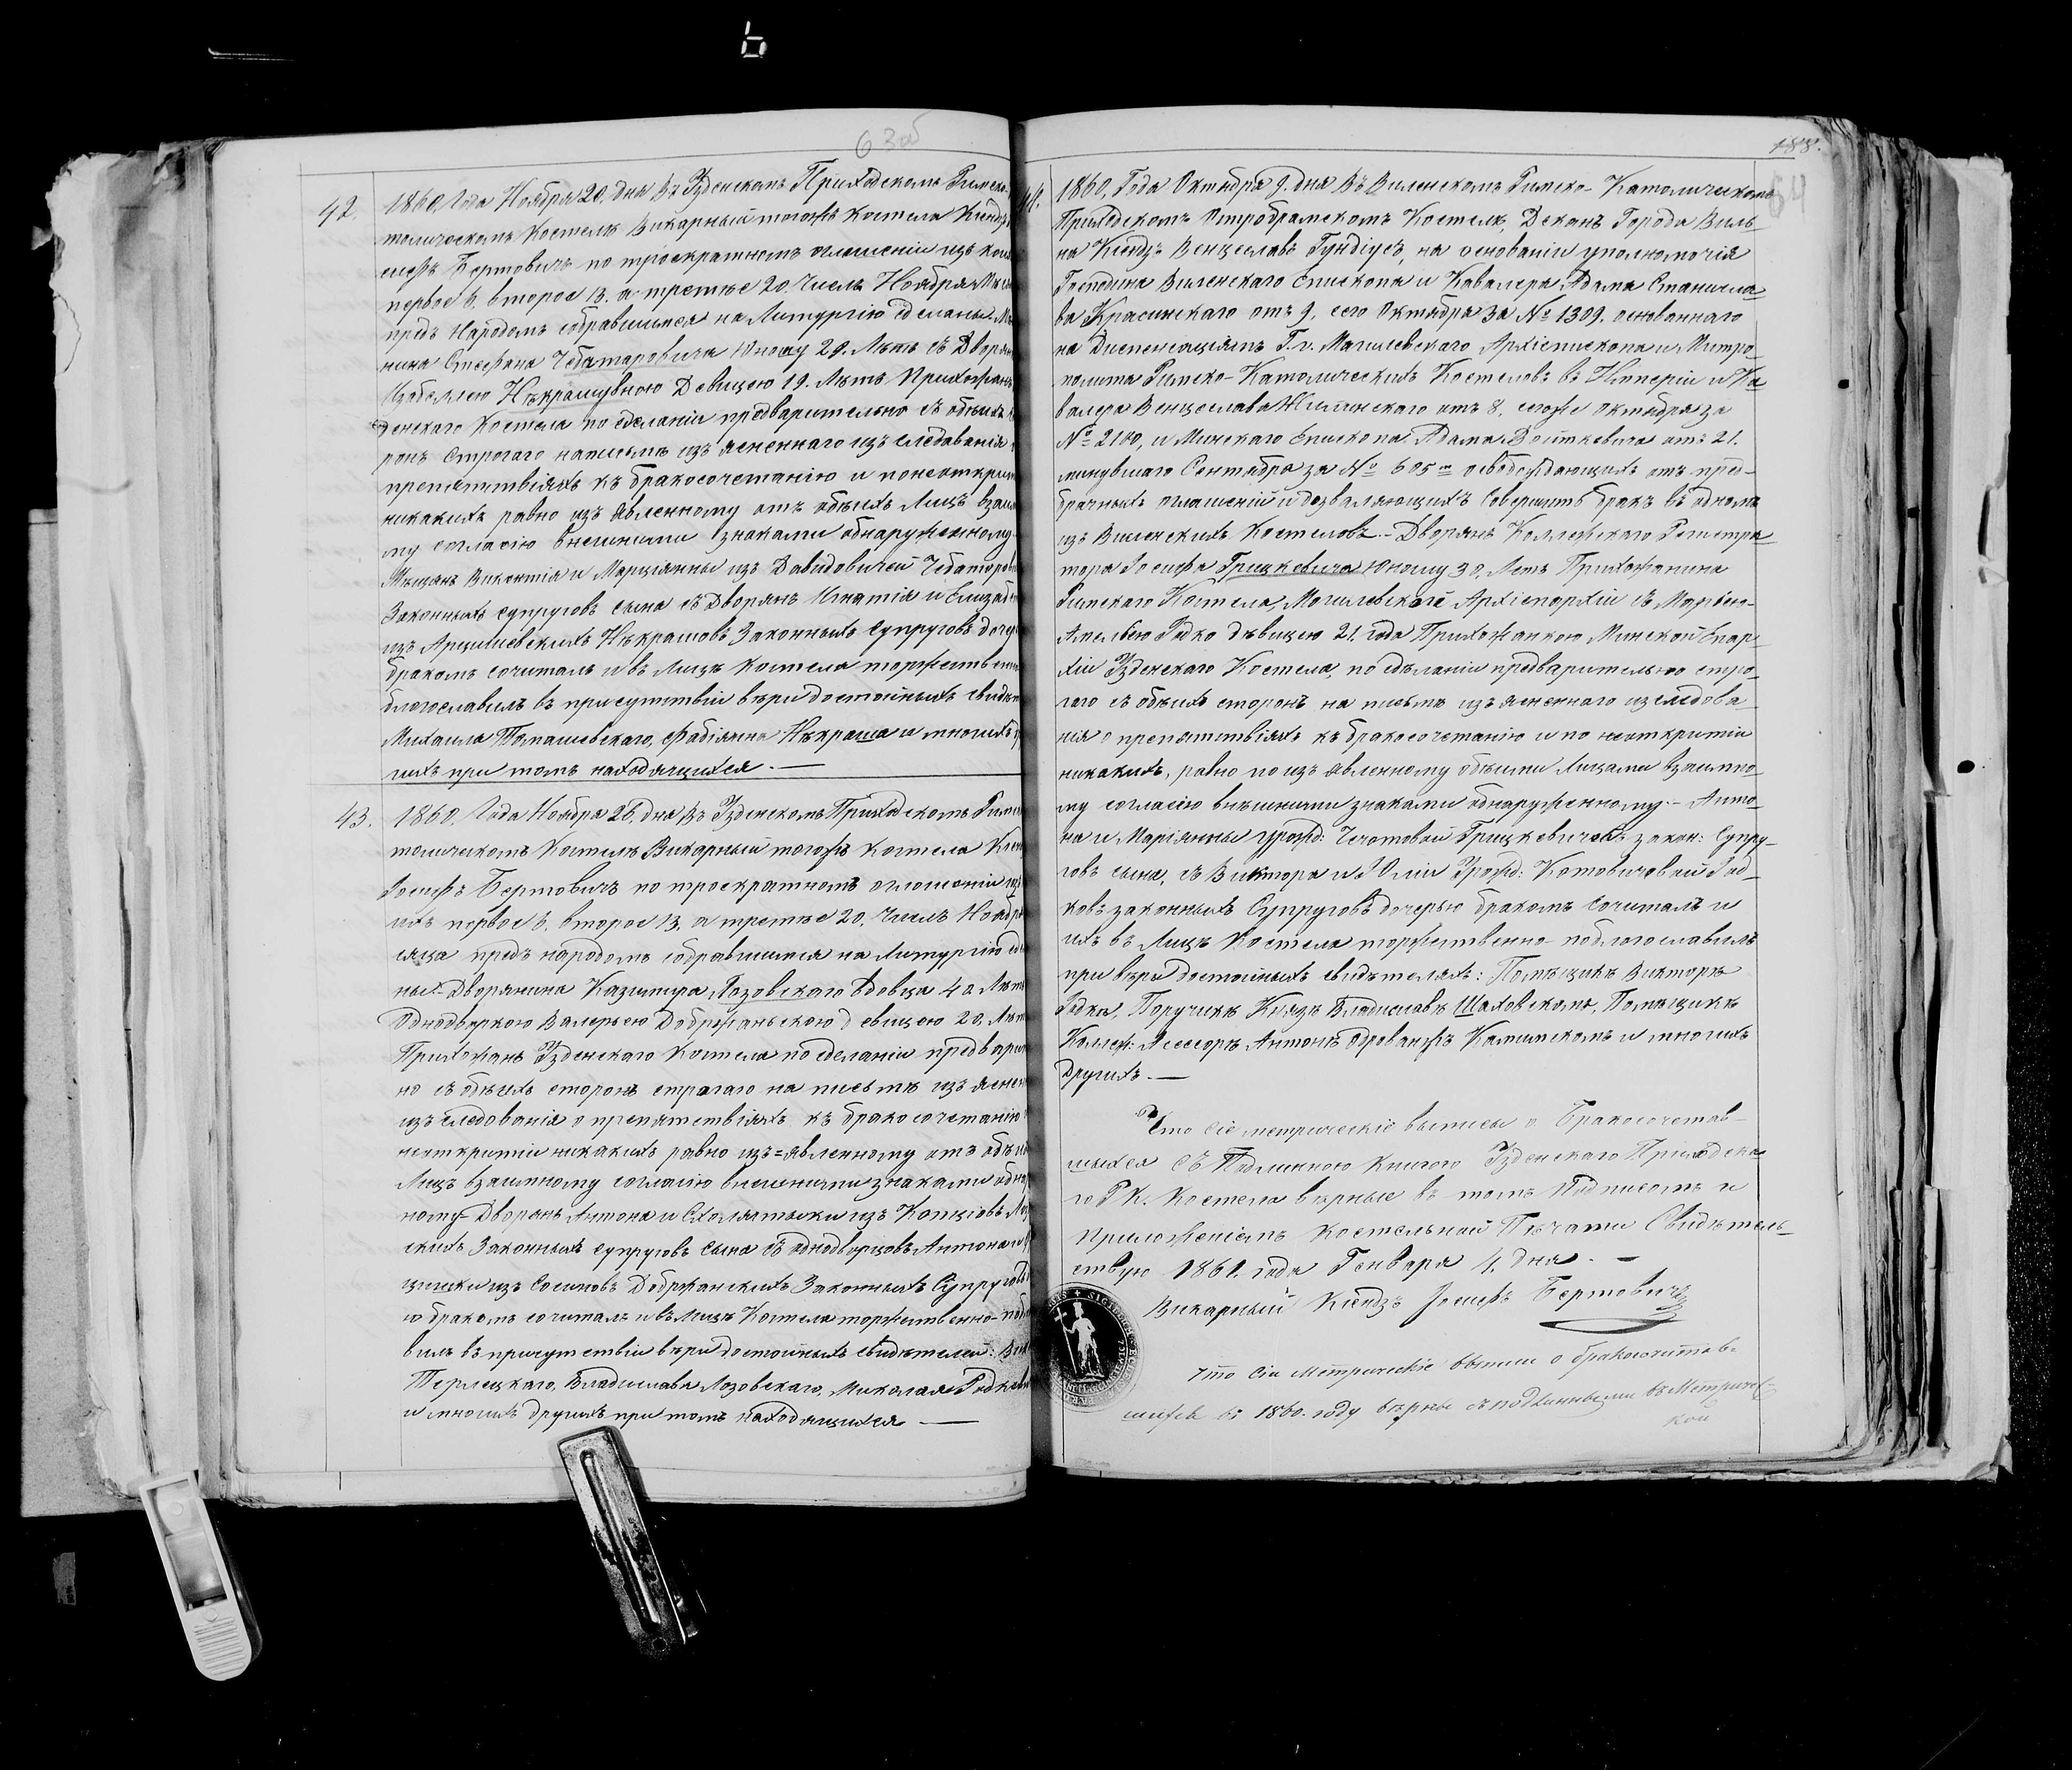 63об
42. 1860. Года Ноября 20. дня въ Узденскомъ Приходскомъ Римско-
толическомъ Костелѣ Викарный тогожъ Костела Ксендзъ
сифъ Бертовичъ по троекратномъ оглашеніи изъ коихъ
первое 6. второе 13. а третье 20. Числъ Ноября Мѣся
предъ Народомъ собравшимся на Литургію сделаны. Мѣ
нина Стефана Чебатаровича Юношу 29. Лѣтъ съ Дворян
Изабеллею Нѣкрашувною Девицею 19. Лѣтъ Прихожанъ
денскаго Костела по сделаніи предварительно съ обѣихъ
ронъ строгаго написьмѣ изъясненнаго изъследованія
препятствіяхъ къ бракосочетанію и понеоткрыт
никакихъ равно изъявленному отъ обѣихъ Лицъ взаим
му согласію внешними знаками обнаруженному
Мѣщанъ Викентія и Марціянны изъ Давидовичей Чебаторов
Законныхъ супруговъ сына съ Дворянъ Игнатія и Елизаб
изъ Арцишевскихъ Нѣкрашовъ Законныхъ Супруговъ дочер
бракомъ сочиталъ и въ Лицѣ Костела торжественно
благославилъ въ присутствіи вѣри достойныхъ свидѣт
Михаила Томашевскаго, Фабіяна Нѣкраша и многихъ
гихъ при томъ находящихся. —
43. 1860. Года Ноября 26. дня въ Узденскомъ Приходскомъ Римск
толическомъ Костелѣ Викарный тогожъ Костела Ксен
Іосифъ Бертовичъ по троекратномъ оглашеніи изъ
ихъ первое 6. второе 13. а третье 20. Числъ Ноября
сяца предъ народомъ собравшимся на Литургію сд
ныхъ Дворянина Казимира Лозовскаго Вдовца 40. Лѣтъ
Однодворкою Валерьею Добржаньскою девицею 20. Лѣт
Прихожанъ Узденскаго Костела по сделаніи предвари
но съ обѣихъ сторонъ строгаго на письмѣ изъяснен
изъследованія о препятствіяхъ къ бракосочетанію
неоткрытіи никакихъ равно изъ=явленному отъ обѣих
Лицъ взаимному согласію внешними знаками обна
ному Дворянъ Антона и Схолястыки изъ Лоз
скихъ Законныхъ супруговъ сына съ однодворцовъ Антона и
цишки изъ Сосиновъ Добржанскихъ Законныхъ Супруговъ
ю бракомъ сочиталъ и въ Лицѣ Костела торжественно побл
вилъ въ присутствіи вѣри достойныхъ свидѣтелей: Вик
Терлецкаго, Владислава Лозовскаго, Миколая Радкев
и многихъ другихъ при томъ находящихся —
188.
64
44. 1860. Года Октября 9. дня въ Виленскомъ Римско-Католическомъ
Приходскомъ Остробрамскомъ Костелѣ, Деканъ Города Виль-
на Ксендзъ Венцеславъ Гундіусъ, на основаніи уполномочія
Господина Виленскаго Епископа и Кавалера Адама Станисла-
ва Красинскаго отъ 9. сего Октября за № 1309. основаннаго
на Диспенсаціяхъ Г. г. Магилевскаго Архіепископа и Митро-
полита Римско-Католическихъ Костеловъ въ Имперіи и Ка-
валера Венцеслава Жилинскаго отъ 8. сегоже Октября за
№ 2100, и Минскаго Епископа Адама Войткевича отъ 21.
минувшаго Сентября за № 605 освобождающихъ отъ пред-
брачныхъ оглашеній и дозваляющихъ Совершить бракъ въ одномъ
изъ Виленскихъ Костеловъ.- Дворянъ Коллежскаго Регистра-
тора Іосифа Грицкевича Юношу 30. Летъ Прихожанина
Римскаго Костела, Могилевской Архіепархіи съ Маріею-
Амелією Радко дѣвицею 21. года Прихожанкою Минской Епар-
хіи Узденскаго Костела, по сдѣланіи предварительно стро-
гаго съ обѣихъ сторонъ на письмѣ изъясненнаго изследова-
нія о препятствіяхъ къ бракосочетанію и по неоткритіи
никакихъ, равно по изъявленному обѣими Лицами взаимно-
му согласію внѣшними знаками обнаруженному.- Анто-
на и Маріянны урожд: Грицкевичей закон: Супру-
говъ сына, съ Виктора и Юліи Урожд: Котовичовой Рад-
ковъ законныхъ Супруговъ дочерью бракомъ Сочиталъ и
ихъ въ Лицѣ Костела торжественно поблагославилъ
при вѣри достойныхъ свидѣтеляхъ: Помѣщикѣ Викторѣ
Радкѣ, Поручикѣ Князѣ Владиславѣ Шаховскомъ, Помѣщикѣ
Коллеж: Ассесорѣ Антонѣ Камимскомъ и многихъ
другихъ. —
Что сіе метрическіе выписы о Бракосочетав-
шихся съ Подлинною Книгою Узденскаго Приходска-
го Р. К. Костела вѣрные въ томъ Подписомъ и
приложеніемъ Костельной Печати Свидѣтель-
ствую 1861. года Генваря 4. дня. —
Викарный Ксендзъ Іосифъ Бертовичъ
Что сіи Метрическіе выписи о бракосочетав-
шихся въ 1860. году вѣрны съ подлинными въ Метричес-
кой